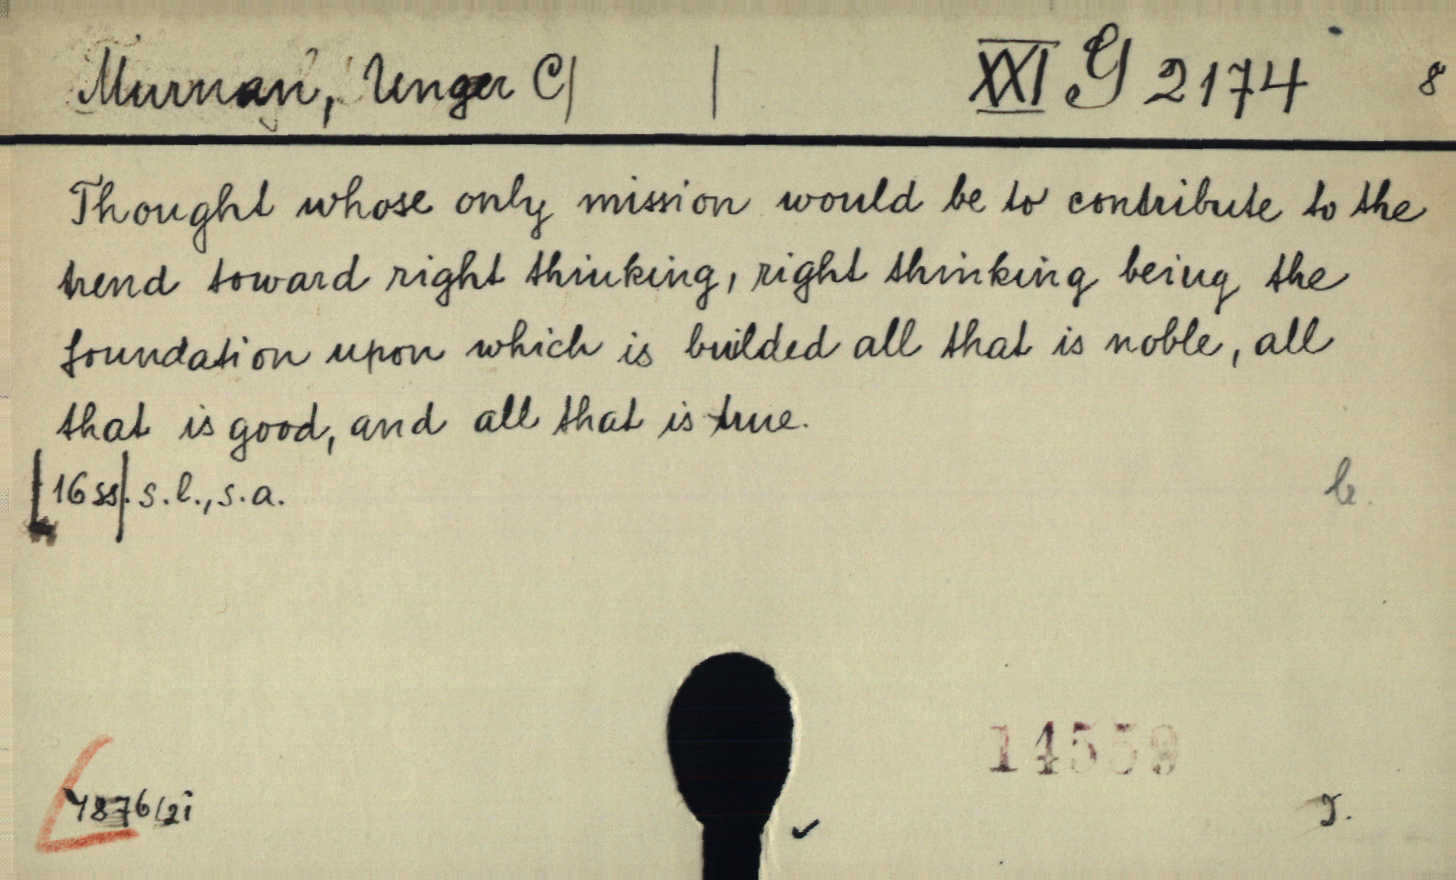 Murnan, Unger C| | XXI G 2174 8
Thought whose only mission would be to contribute to the
trend toward right thinking, right thinking being the
foundation upon which is builded all that is noble, all
that is good, and all that is true.
|16 ss|. s.l., s.a.
14559
J.